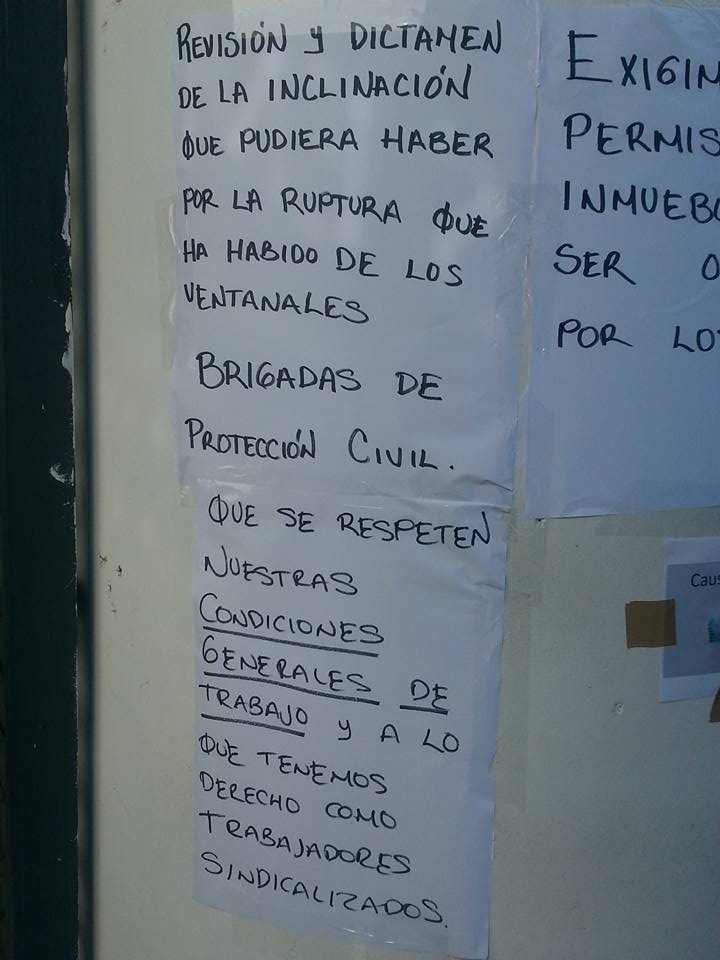 REVISIÓN Y DICTAMEN
DE LA INCLINACIÓN
QUE PUDIERA HABER
POR LA RUPTURA QUE
HA HABIDO DE LOS
VENTANALES
BRIGADAS DE
PROTECCIÓN CIVIL.
QUE SE RESPETEN
NUESTRAS
CONDICIONES
GENERALES DE
TRABAJO Y A LO
QUE TENEMOS
DERECHO COMO
TRABAJADORES
SINDICALIZADOS.
EXIGIM
PERMIS
INMUEB
SER O
POR LO
Caus